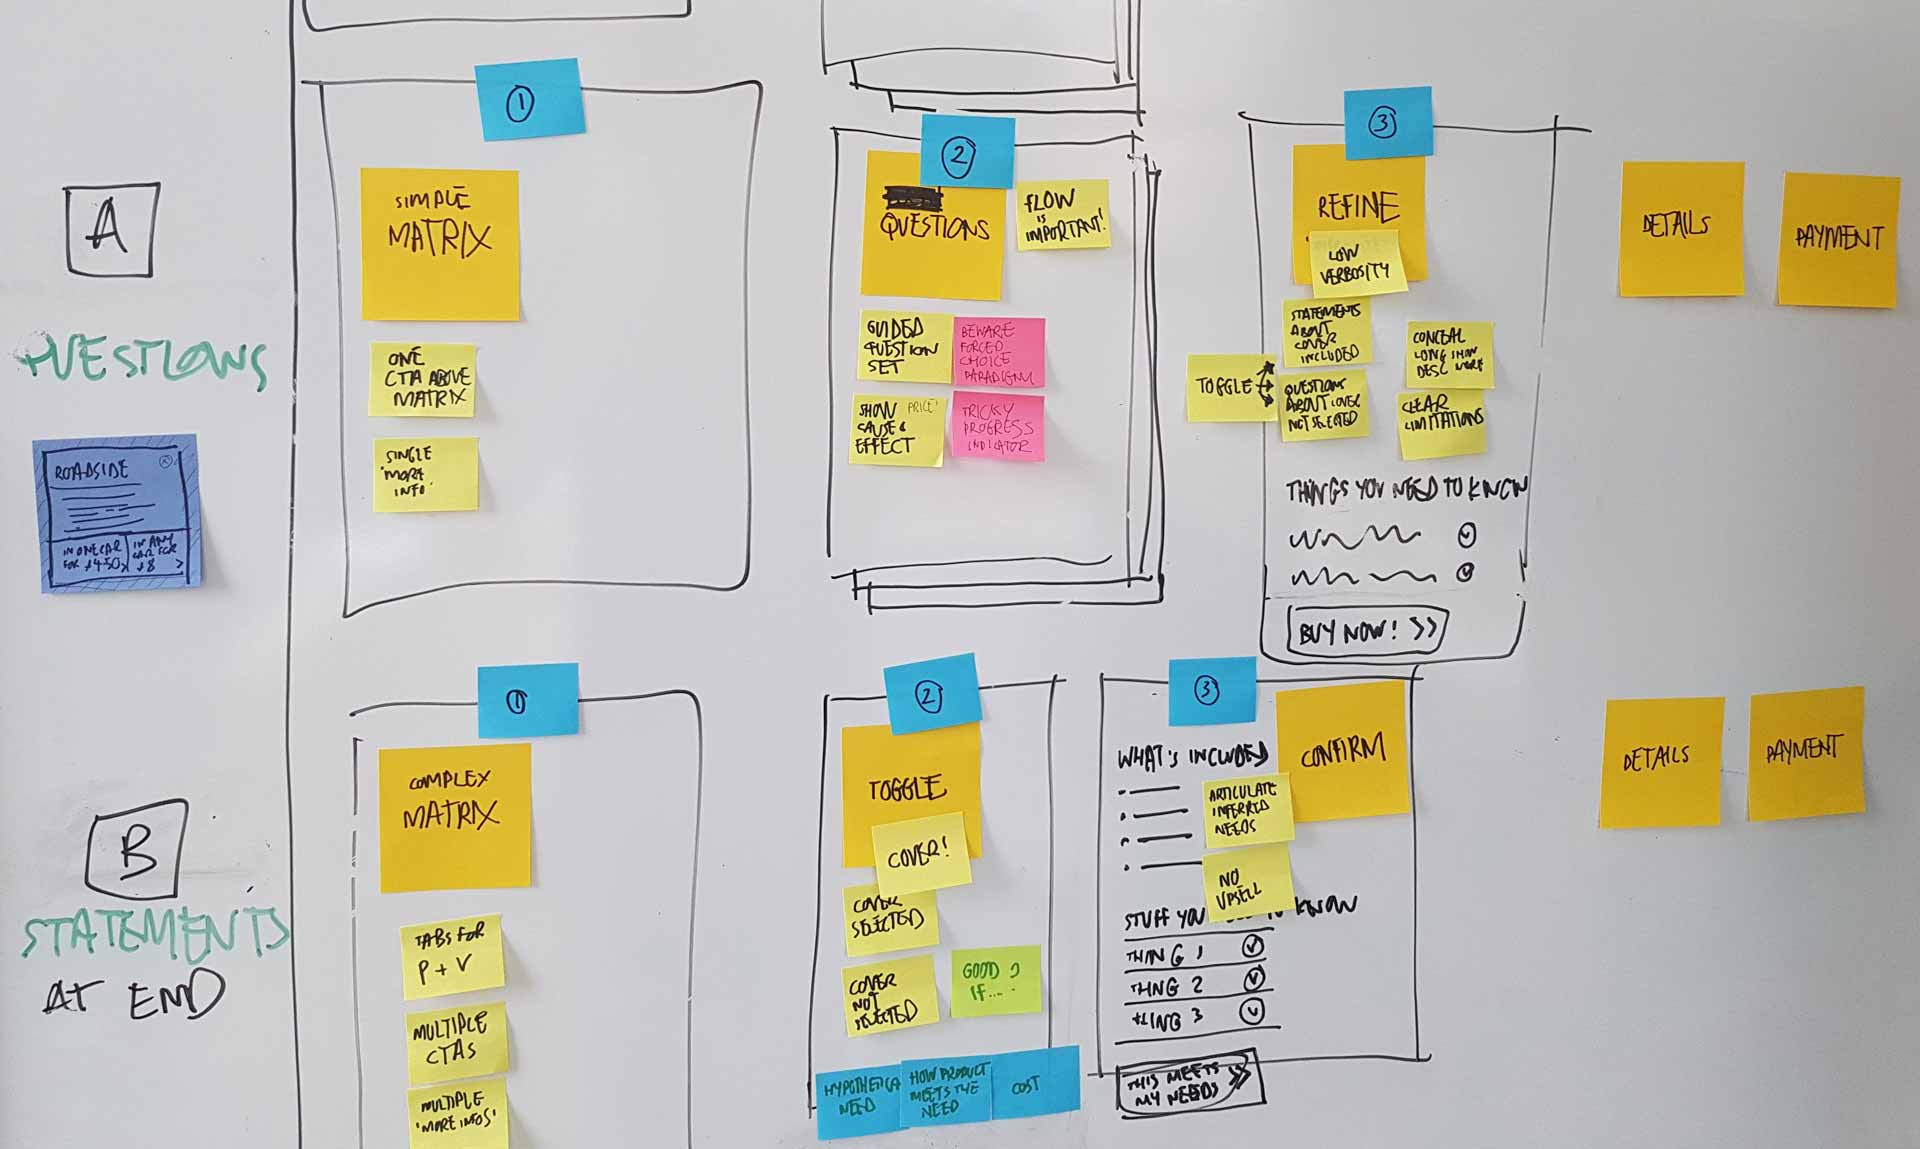 A
QUESTIONS
ROADSIDE
IN ONE CAR
FOR £4.50
IN ANY
CAR FOR
£8
1
SIMPLE
MATRIX
ONE
CTA ABOVE
MATRIX
SINGLE
'MORE
INFO'
2
QUESTIONS
FLOW
IS
IMPORTANT!
GUIDED
QUESTION
SET
BEWARE
FORCED
CHOICE
PARADIGM
SHOW PRICE!
CAUSE &
EFFECT
TRICKY
PROGRESS
INDICATOR
3
REFINE
LOW
VERBOSITY
STATEMENTS
ABOUT
COVER
INCLUDED
TOGGLE
QUESTIONS
ABOUT COVER
NOT SELECTED
CONCEAL
LONG SHOW
DESC MORE
CLEAR
LIMITATIONS
THINGS YOU NEED TO KNOW
BUY NOW! >>
DETAILS
PAYMENT
B
STATEMENTS
AT END
1
COMPLEX
MATRIX
TABS FOR
P + V
MULTIPLE
CTAS
MULTIPLE
'MORE INFOS'
2
TOGGLE
COVER!
COVER
SELECTED
COVER
NOT
SELECTED
GOOD
IF....
HYPOTHETICA
NEED
HOW PRODUCT
MEETS THE
NEED
COST
3
CONFIRM
WHAT'S INCLUDED
ARTICULATE
INFERRED
NEEDS
NO
UPSELL
STUFF YOU TO KNOW
THING 1
THING 2
THING 3
THIS MEETS
MY NEEDS >>
DETAILS
PAYMENT